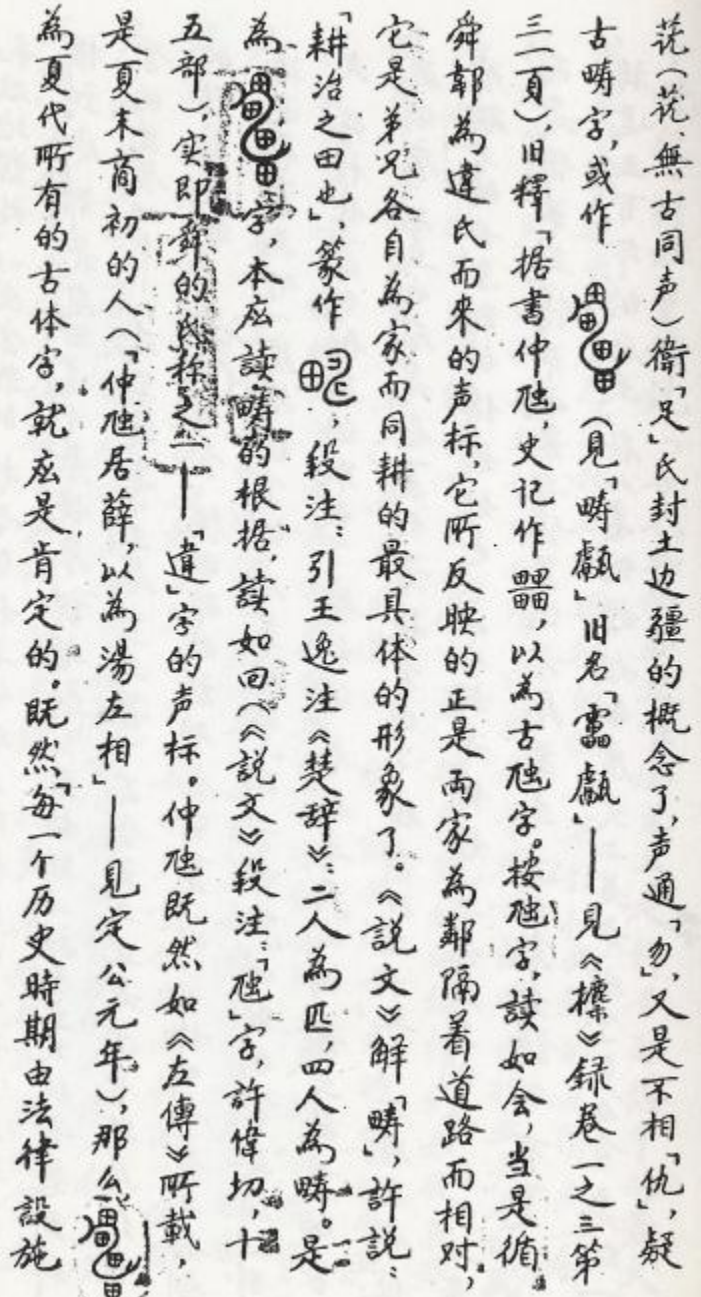 范（范、無古同声）衞「足」氏封土边疆的概念了，声通「勿」，又是不相「仇」，疑
古畴字，或作（見「畴甗」旧名「靁甗」——見《攈》録卷一之三第
三一頁），旧釋「据書仲虺，史记作𤳳，以為古虺字。按虺字，讀如会，当是循
舜部為違氏而來的声标，它所反映的正是两家為鄰隔着道路而相对，
它是弟兄各自為家而同耕的最具体的形象了。《説文》解「畴」，許説：
「耕治之田也」，篆作，段注：引王逸注《楚辞》：二人為匹，四人為畴。是
為字，本应讀畴的根据，讀如回（《說文》段注：「虺」字，許偉切，十
五部），实即舜的氏称之一——「違」字的声标。仲虺既然如《左傳》所載，
是夏末商初的人（「仲虺居薛，以為湯左相」——見定公元年），那么
為夏代所有的古体字，就应是肯定的。既然「每一个历史時期由法律設施